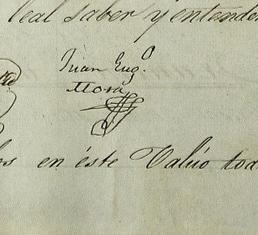 leal saber y entender
Juan Eug.º
Mora
en éste Valúo tod